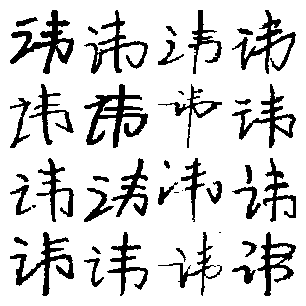 讳讳讳讳
讳讳讳讳
讳讳讳讳
讳讳讳讳